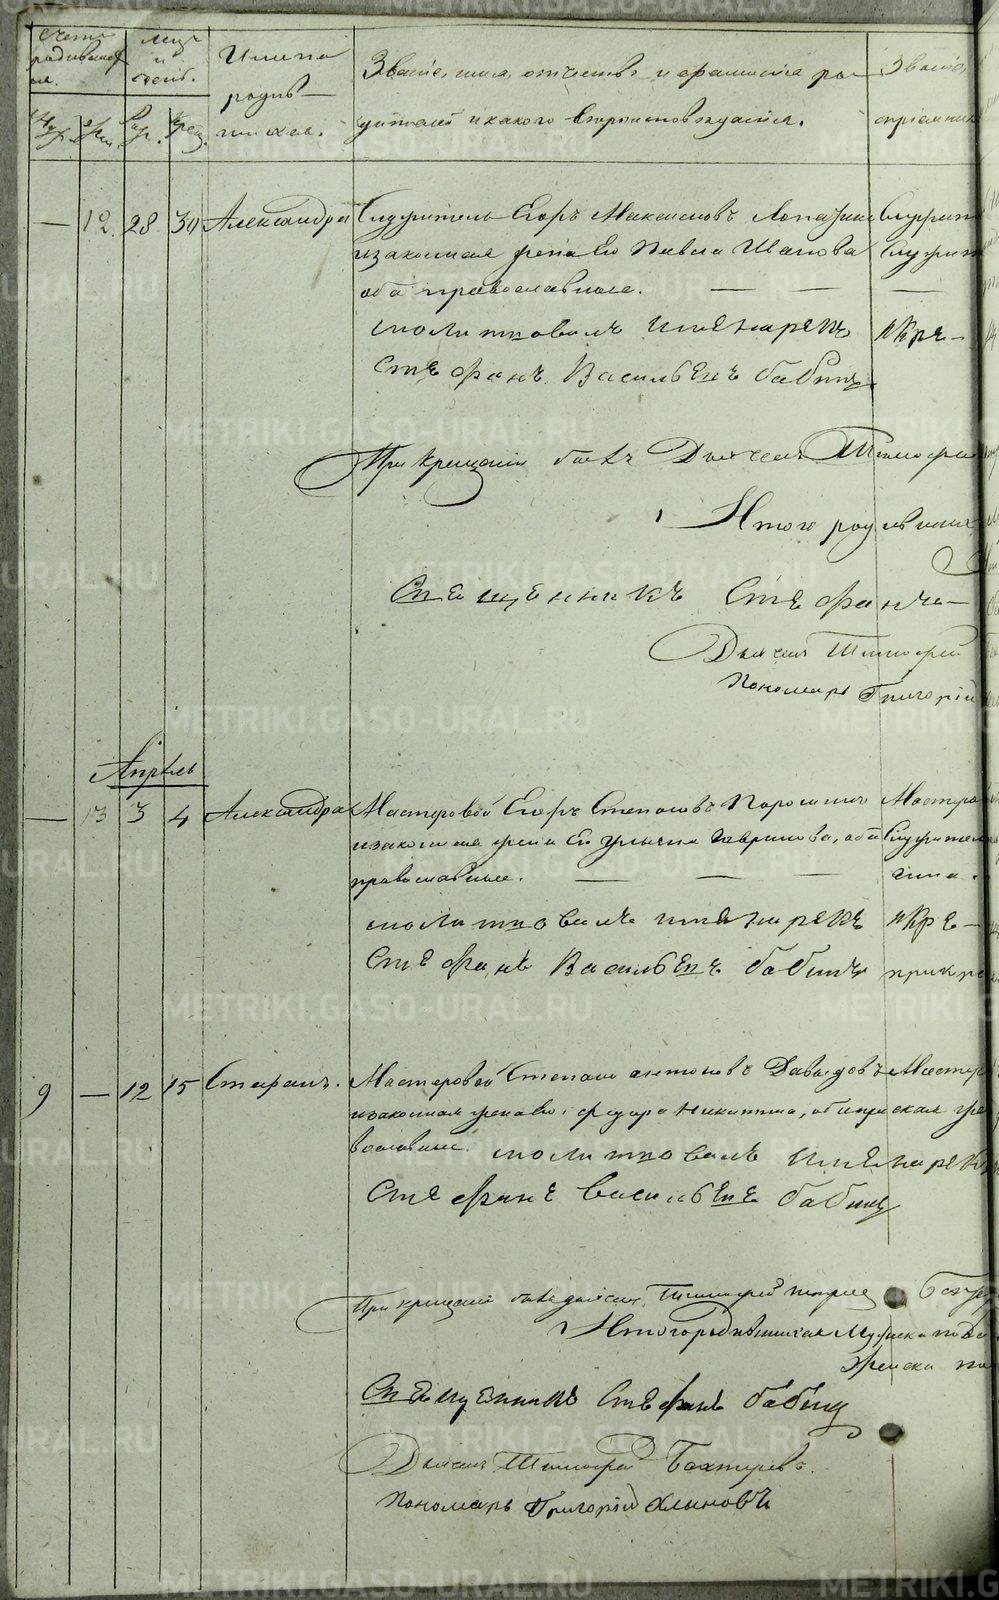 Счетъ родившихся.
Мѣсяцъ и день.
Имена родившихся.
Званіе, имя, отчество и фамилія ро-
дителей и какого вѣроисповѣданія.
Званіе,
воспріемник
Муж. Жен. Рож. Крещ.
— 12. 28 30 Александра Служитель Егоръ Максимовъ Лопатинъ Служит
и законная жена его Павла Иванова Служит
оба православные. — — —
молитвовалъ имѧ нарекъ и кре-
Стефанъ Васильевъ Бабинъ
При крещеніи былъ Дьячекъ Тимофей
Итого родившихся
Священникъ Стефанъ
Дьячекъ Тимофей
Пономарь Григорій
Апрѣль
— 13 3 4 Александра Мастеровой Егоръ Степановъ Мастеро
и законная жена его Гаврилова, оба Служител
православные. — — —
молитвовалъ имѧ нарекъ и кре-
Стефанъ Васильевъ Бабинъ при кре
9 — 12 15 Стефанъ. Мастеровой Степанъ Антоновъ Давыдовъ Мастер
и законная жена его Федора Никитина, оба
православные. молитвовалъ имѧ нарекъ
Стефанъ Васильевъ Бабинъ
При крещеніи былъ дьячекъ Тимофей
Итого родившихся Мужеска пола
Женска по
Священникъ Стефанъ Бабинъ
Дьячекъ Тимофей Бахтеревъ.
Пономарь Григорій Хлыновъ
METRIKI.GASO-URAL.RU